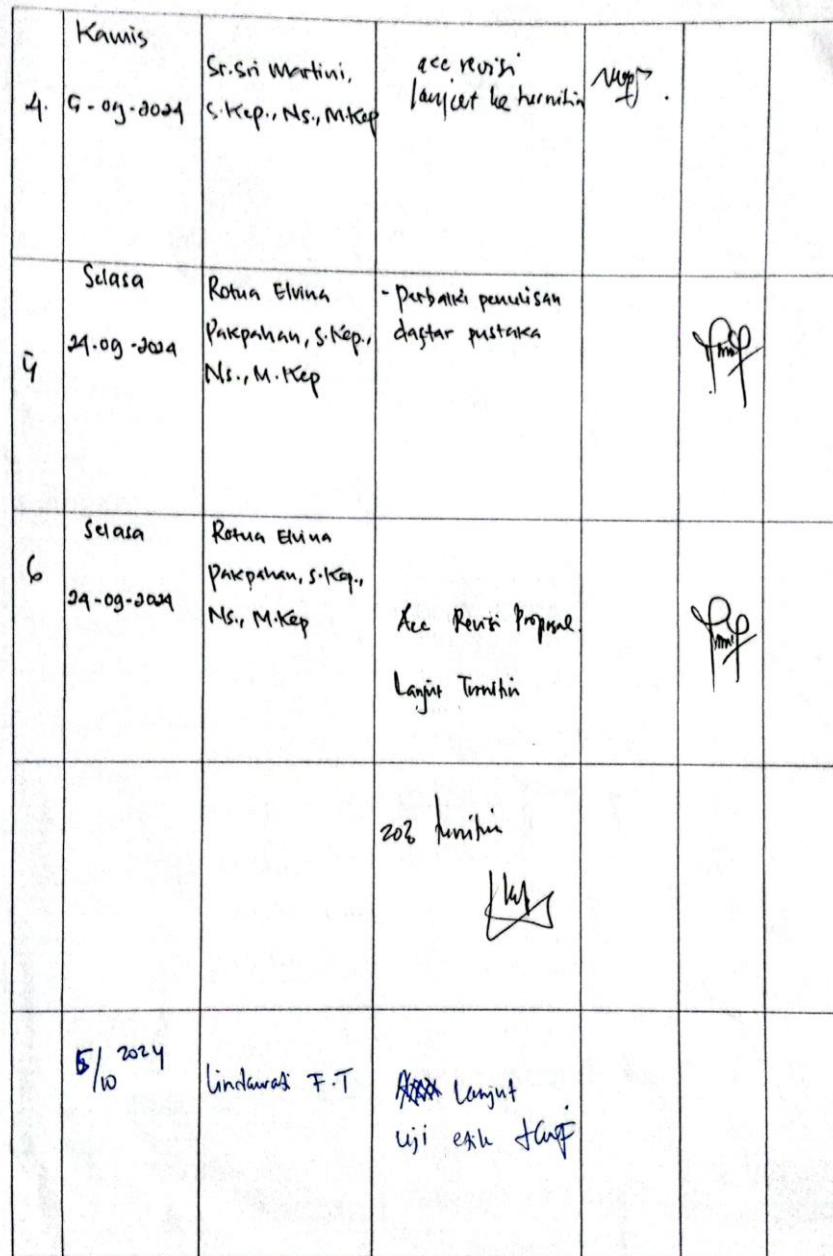 Kamis
4.
5-09-2024
Sr. Sri Martini,
S.Kep., Ns., M.Kep
acc revisi
lanjut ke turnitin
5
Selasa
24-09-2024
Rotua Elvina
Pakpahan, S.Kep.,
Ns., M.Kep
- Perbaiki penulisan
daftar pustaka
6
Selasa
24-09-2024
Rotua Elvina
Pakpahan, S.Kep.,
Ns., M.Kep
Acc Revisi Proposal.
Lanjut Turnitin
turnitin
5/10 2024
Lindawati F.T
Lanjut
uji etik